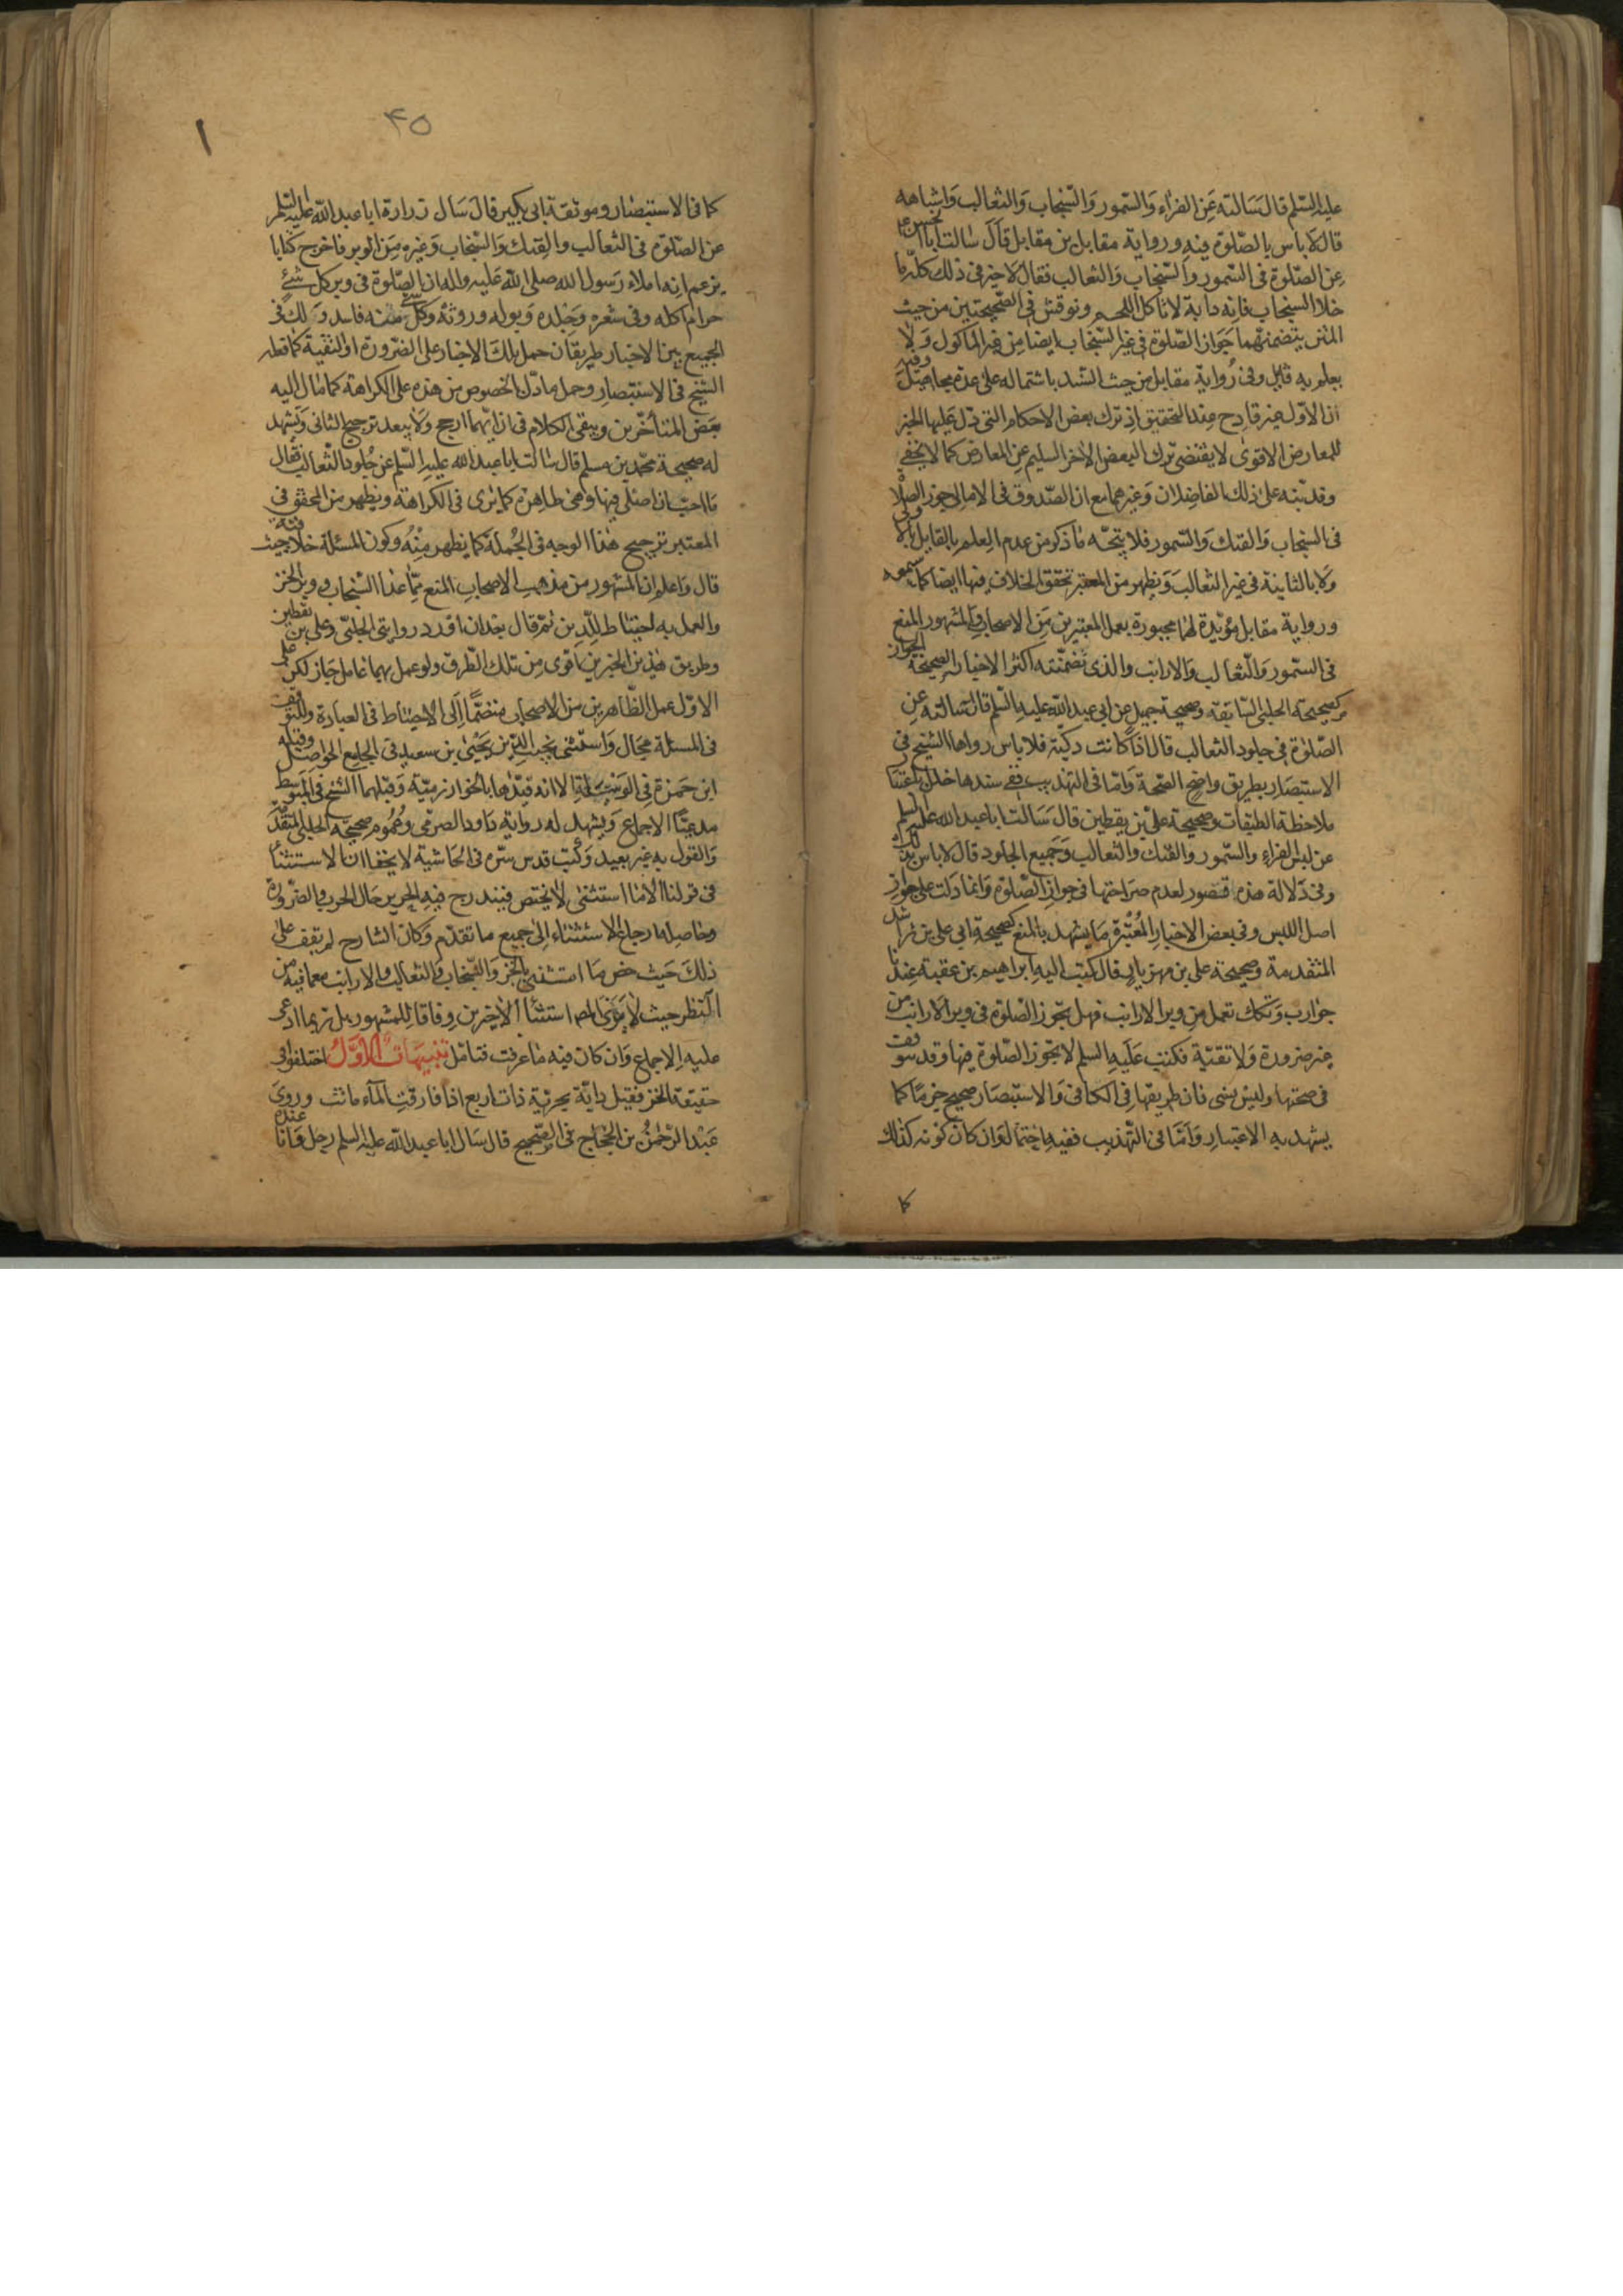 عليه السلم قال سالته عن الفراء والسمور والسنجاب والثعالب واشباهه
قال لا باس بالصلوة فيه ورواية مقاتل بن مقاتل قال سالت ابا الحسن ع
عن الصلوة فى السمور والسنجاب والثعالب فقال لا خير فى ذلك كله ما
خلا السنجاب فانه دابة لا تاكل اللحم ونوقش فى الصحيحتين من حيث
المتن بتضمنهما جواز الصلوة فى غير السنجاب ايضا من غير الماكول ولا
يعلم به قايل وفى رواية مقاتل من حيث السند باشتماله على عدة مجاهيل وفيه
ان الاول غير قادح عند التحقيق اذ ترك بعض الاحكام التى دل عليها الخبر
للمعارض الاقوى لا يقتضى ترك البعض الاخر السليم عن المعارض كما لا يخفى
وقد نبه على ذلك الفاضلان وغيرهما مع ان الصدوق فى الامالى جوز الصلا
فى السنجاب والفنك والسمور فلا يتجه ما ذكر من عدم العلم بالقايل بالاولى
ولا بالثانية فى غير الثعالب ويظهر من المعتبر تحقق الخلاف فيها ايضا كما ستسمعه
ورواية مقاتل مؤيدة لهما مجبورة بعمل المعتبرين من الاصحاب والمشهور المنع
فى السمور والثعالب والارانب والذى تضمنته اكثر الاخبار الصحيحة الجواز
كصحيحة الحلبى السابقة وصحيحة جميل عن ابى عبد الله عليه السلم قال سالته عن
الصلوة فى جلود الثعالب قال اذا كانت ذكية فلا باس رواها الشيخ فى
الاستبصار بطريق واضح الصحة واما فى التهذيب ففى سندها خلل باعتبا
ملاحظة الطبقات وصحيحة على بن يقطين قال سالت ابا عبد الله عليه السلم
عن لبس الفراء والسمور والفنك والثعالب وجميع الجلود قال لا باس بذلك
وفى دلالة هذه قصور لعدم صراحتها فى جواز الصلوة وانما دلت على جواز
اصل اللبس وفى بعض الاخبار المعتبرة ما يشهد بالمنع كصحيحة ابى على بن راشد
المتقدمة وصحيحة على بن مهزيار قال كتب اليه ابراهيم بن عقبة عندنا
جوارب وتكك تعمل من وبر الارانب فهل تجوز الصلوة فى وبر الارانب من
غير ضرورة ولا تقية فكتب عليه السلم لا تجوز الصلوة فيها وقد
فى صحتها وليس بشى فان طريقها فى الكافى والاستبصار صحيح جزما كما
يشهد به الاعتبار واما فى التهذيب ففيه احتمال وان كان كونه كذلك
كا
۴۵
۱
كما فى الاستبصار وموثقة ابى بكير قال سال زرارة ابا عبد الله عليه السلم
عن الصلوة فى الثعالب والفنك والسنجاب وغيره من الوبر فاخرج كتابا
يزعم انه املاء رسول الله صلى الله عليه واله ان الصلوة فى وبر كل شئ
حرام اكله وفى شعره وجلده وبوله وروثه وكل شئ منه فاسد ولك فى
الجمع بين الاخبار طريقان حمل تلك الاخبار على الضرورة او التقية كما فعله
الشيخ فى الاستبصار وحمل ما دل بالخصوص من هذه على الكراهة كما مال اليه
بعض المتاخرين ويبقى الكلام فى ان ايهما ارجح ولا يبعد ترجيح الثانى ويشهد
له صحيحة محمد بن مسلم قال سالت ابا عبد الله عليه السلم عن جلود الثعالب فقال
ما احب ان اصلى فيها وهى ظاهرة كما ترى فى الكراهة ويظهر من المحقق فى
المعتبر ترجيح هذا الوجه فى الجملة كما يظهر منه وكون المسئلة خلافية حيث
قال واعلم ان المشهور من مذهب الاصحاب المنع مما عدا السنجاب ووبر الخز
والعمل به احتياط للدين ثم قال بعد ان اورد روايتى الحلبى وعلى بن يقطين
وطريق هذين الخبرين اقوى من تلك الطرق ولو عمل بهما عامل جاز لكن على
الاول عمل الظاهرين من الاصحاب منضما الى الاحتياط فى العبادة وللتوقف
فى المسئلة مجال واستثنى نجيب الدين يحيى بن سعيد فى الجامع الحواصل وقبله
ابن حمزة فى الوسيلة الا انه قيدها بالخوارزمية وقبلهما الشيخ فى المبسوط
مدعيا الاجماع ويشهد له رواية داود الصرمى وعموم صحيحة الحلبى المتقد
والقول به غير بعيد وكتب قدس سره فى الحاشية لا يخفى ان الاستثنا
فى قولنا الا ما استثنى لا يختص فيندرج فيه الحرير حال الحرب والضرورة
وحاصله ارجاع الاستثناء الى جميع ما تقدم وكان الشارح لم يقف على
ذلك حيث خص ما استثنى بالخز والسنجاب والثعالب والارانب مع ما فيه من
النظر حيث لا يرى المص استثنا الاخيرين وفاقا للمشهور بل ربما ادعى
عليه الاجماع وان كان فيه ما عرفت فتامل تنبيهات الاول اختلفوا فى
حقيقة الخز فقيل دابة بحرية ذات اربع اذا فارقت الماء ماتت وروى
عبد الرحمن بن الحجاج فى الصحيح قال سال ابا عبد الله عليه السلم رجل وانا عنده